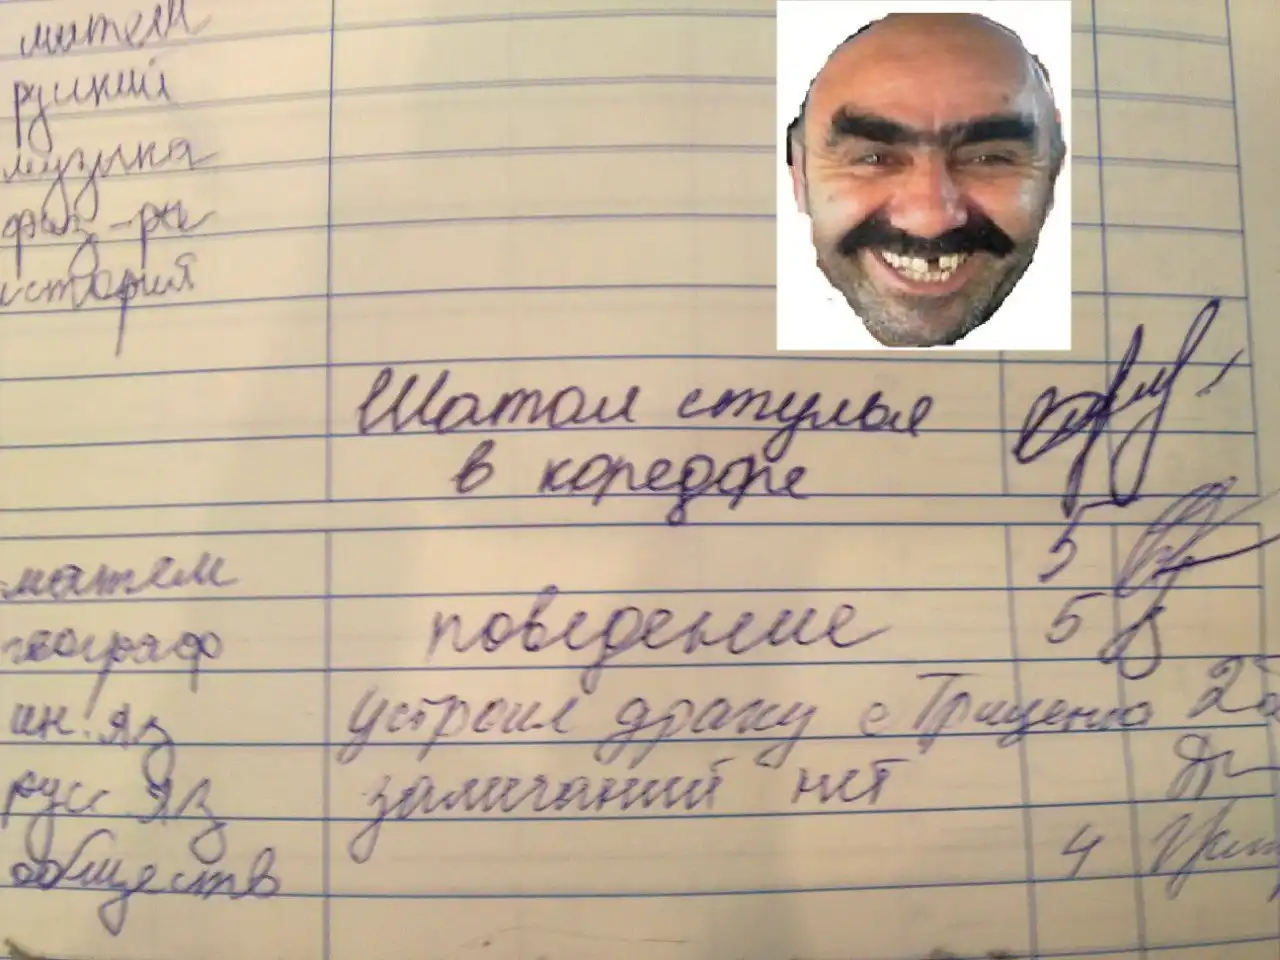 матем
руский
музыка
физ-ра
история
Шатал стулья
в коредоре
матем 5
географ поведение 5
ин. яз устроил драку с Гриценко 2
рус яз замичаний нет
обществ 4